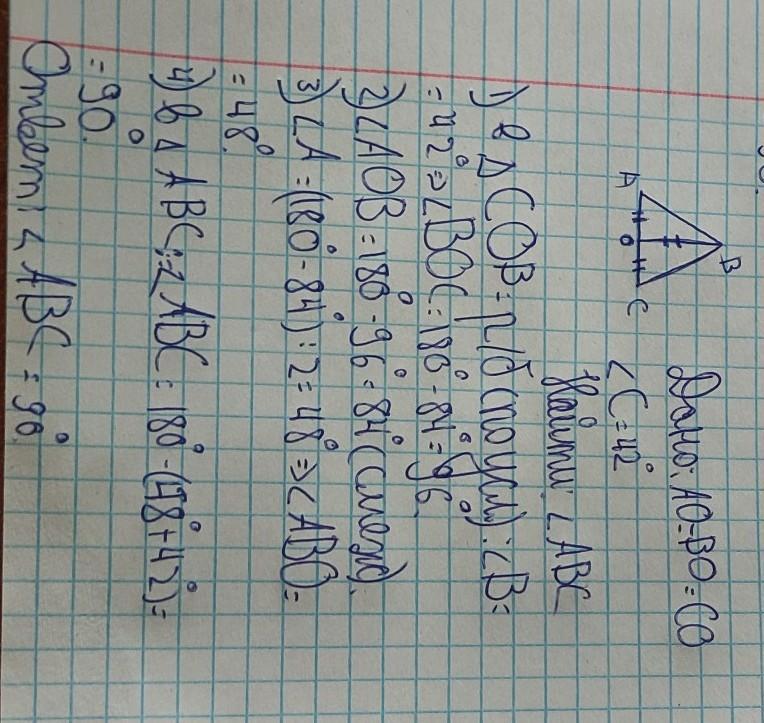 B
A
O
C
Дано: AO=BO=CO
∠C=42°
Найти: ∠ABC
1) в △COB: р/б (по усл): ∠B=
=42° => ∠BOC=180°-84°=96°.
2) ∠AOB=180°-96°=84° (смежн).
3) ∠A=(180°-84°):2=48° => ∠ABO=
=48°.
4) в △ABC: ∠ABC=180°-(48°+42°)=
=90°.
Ответ: ∠ABC=90°.